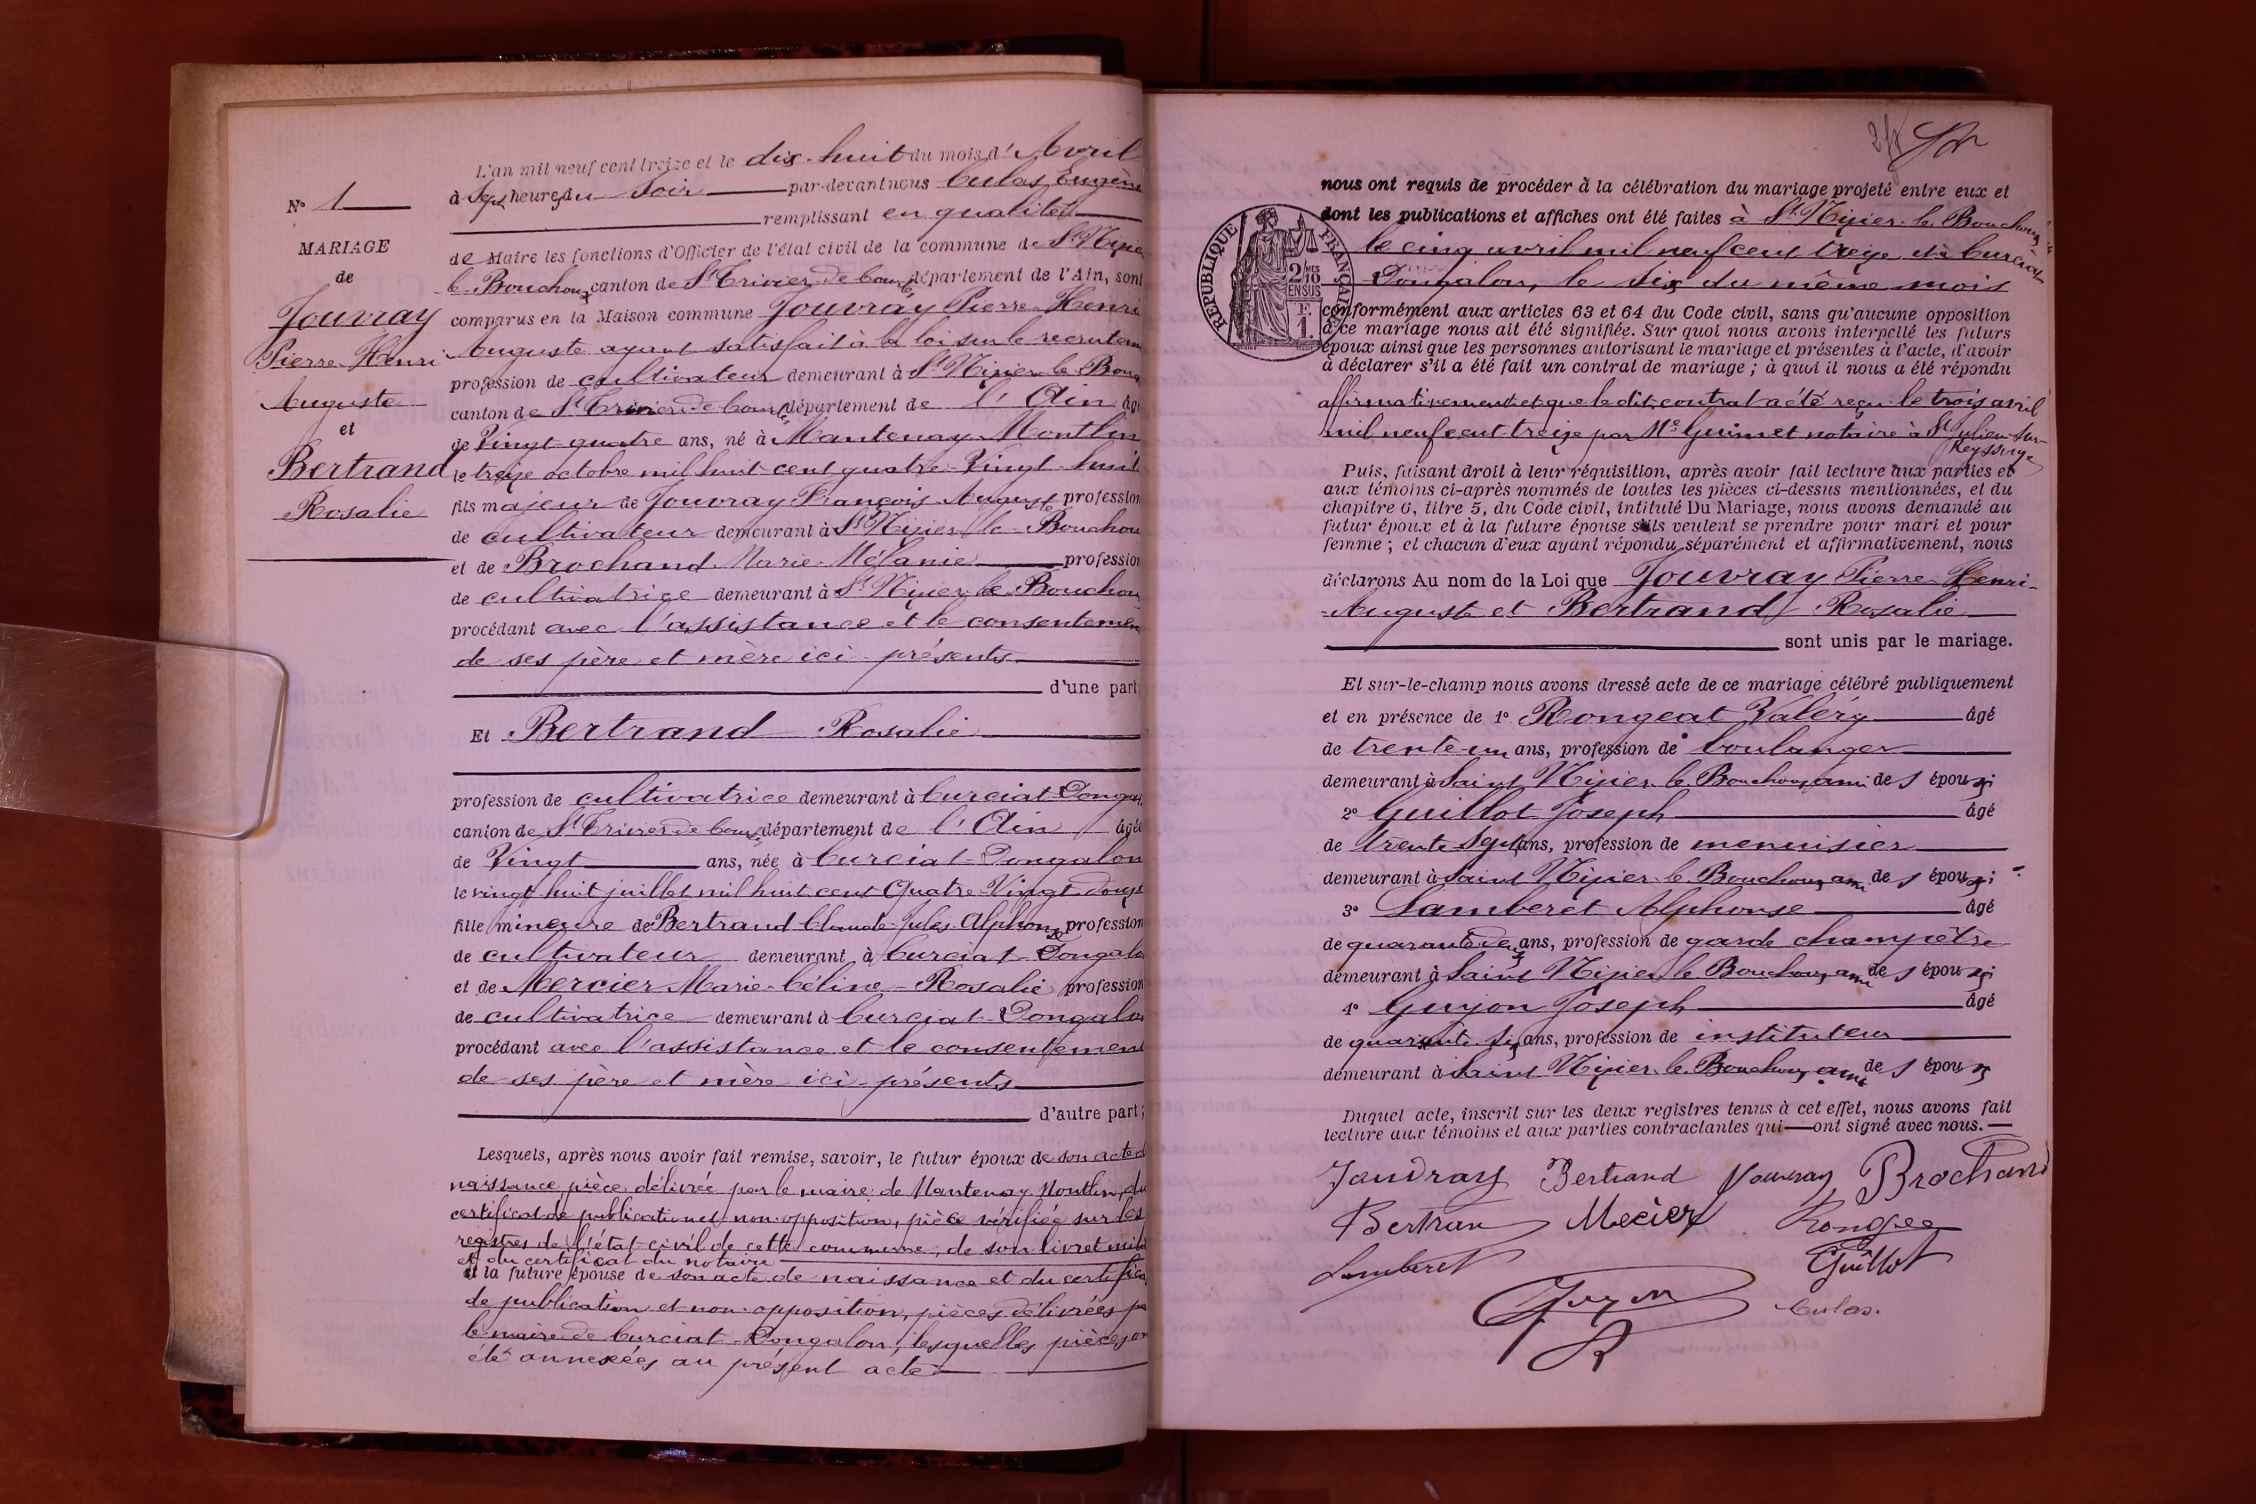 N° 1
MARIAGE
de
Jouvray
Pierre Henri
Auguste
et
Bertrand
Rosalie
L'an mil neuf cent treize et le dix-huit du mois d'Avril
à Sept heures du Soir par-devant nous Culas, Eugène
remplissant en qualité
de Maire les fonctions d'Officier de l'état civil de la commune de St Nizier
le Bouchoux canton de St Trivier de Courtes département de l'Ain, sont
comparus en la Maison commune Jouvray Pierre Henri
Auguste ayant satisfait à la loi sur le recrutem
profession de cultivateur demeurant à St Nizier le Bouc
canton de St Trivier de Courtes département de l'Ain âgé
de Vingt quatre ans, né à Mantenay Montlin
le treize octobre mil huit cent quatre Vingt huit
fils majeur de Jouvray François Auguste profession
de cultivateur demeurant à St Nizier le Bouchou
et de Brochand Marie Mélanie profession
de cultivatrice demeurant à St Nizier le Bouchou
procédant avec l'assistance et le consentemen
de ses père et mère ici présents
d'une part;
Et Bertrand Rosalie
profession de cultivatrice demeurant à Curciat Dongal
canton de St Trivier de Courtes département de l'Ain âgée
de Vingt ans, née à Curciat Dongalon
le vingt huit juillet mil huit cent Quatre Vingt douze
fille mineure de Bertrand Claude Jules Alphonse profession
de cultivateur demeurant à Curciat Dongalo
et de Mercier Marie Céline Rosalie profession
de cultivatrice demeurant à Curciat Dongalon
procédant avec l'assistance et le consentement
de ses père et mère ici présents
d'autre part;
Lesquels, après nous avoir fait remise, savoir, le futur époux de son acte d
naissance pièce délivrée par le maire de Mantenay Montlin, du
certificat de publication et non-opposition, pièce vérifiée sur les
registres de l'état civil de cette commune, de son livret mili
et du certificat du notaire
et la future épouse de son acte de naissance et du certifica
de publication et non opposition, pièces délivrées pa
le maire de Curciat Dongalon, lesquelles pièces on
été annexées au présent acte
nous ont requis de procéder à la célébration du mariage projeté entre eux et
dont les publications et affiches ont été faites à St Nizier le Bouchoux
le cinq avril mil neuf cent treize et à Curciat
Dongalon, le six du même mois
RÉPUBLIQUE FRANÇAISE
2/10 EN SUS
1 F.
conformément aux articles 63 et 64 du Code civil, sans qu'aucune opposition
à ce mariage nous ait été signifiée. Sur quoi nous avons interpellé les futurs
époux ainsi que les personnes autorisant le mariage et présentes à l'acte, d'avoir
à déclarer s'il a été fait un contrat de mariage ; à quoi il nous a été répondu
affirmativement et que le dit contrat a été reçu le trois avril
mil neuf cent treize par Me Guimet notaire à St Julien-sur-
Reyssouze
Puis, faisant droit à leur réquisition, après avoir fait lecture aux parties et
aux témoins ci-après nommés de toutes les pièces ci-dessus mentionnées, et du
chapitre 6, titre 5, du Code civil, intitulé Du Mariage, nous avons demandé au
futur époux et à la future épouse s'ils veulent se prendre pour mari et pour
femme ; et chacun d'eux ayant répondu séparément et affirmativement, nous
déclarons Au nom de la Loi que Jouvray Pierre Henri-
Auguste et Bertrand Rosalie
sont unis par le mariage.
Et sur-le-champ nous avons dressé acte de ce mariage célébré publiquement
et en présence de 1° Rongeat Valéry âgé
de trente-un ans, profession de boulanger
demeurant à Saint Nizier le Bouchoux, ami des époux;
2° Guillot Joseph âgé
de trente Sept ans, profession de menuisier
demeurant à Saint Nizier le Bouchoux ami des époux;
3° Lamberet Alphonse âgé
de quarante deux ans, profession de garde champêtre
demeurant à Saint Nizier le Bouchoux, ami des époux;
4° Guyon Joseph âgé
de quarante six ans, profession de instituteur
demeurant à Saint Nizier le Bouchoux, ami des époux
Duquel acte, inscrit sur les deux registres tenus à cet effet, nous avons fait
lecture aux témoins et aux parties contractantes qui ont signé avec nous.
Jouvray Bertrand Jouvray Brochand
Bertran Mecier Rongea
Lamberet Guillot
Guyon Culas.